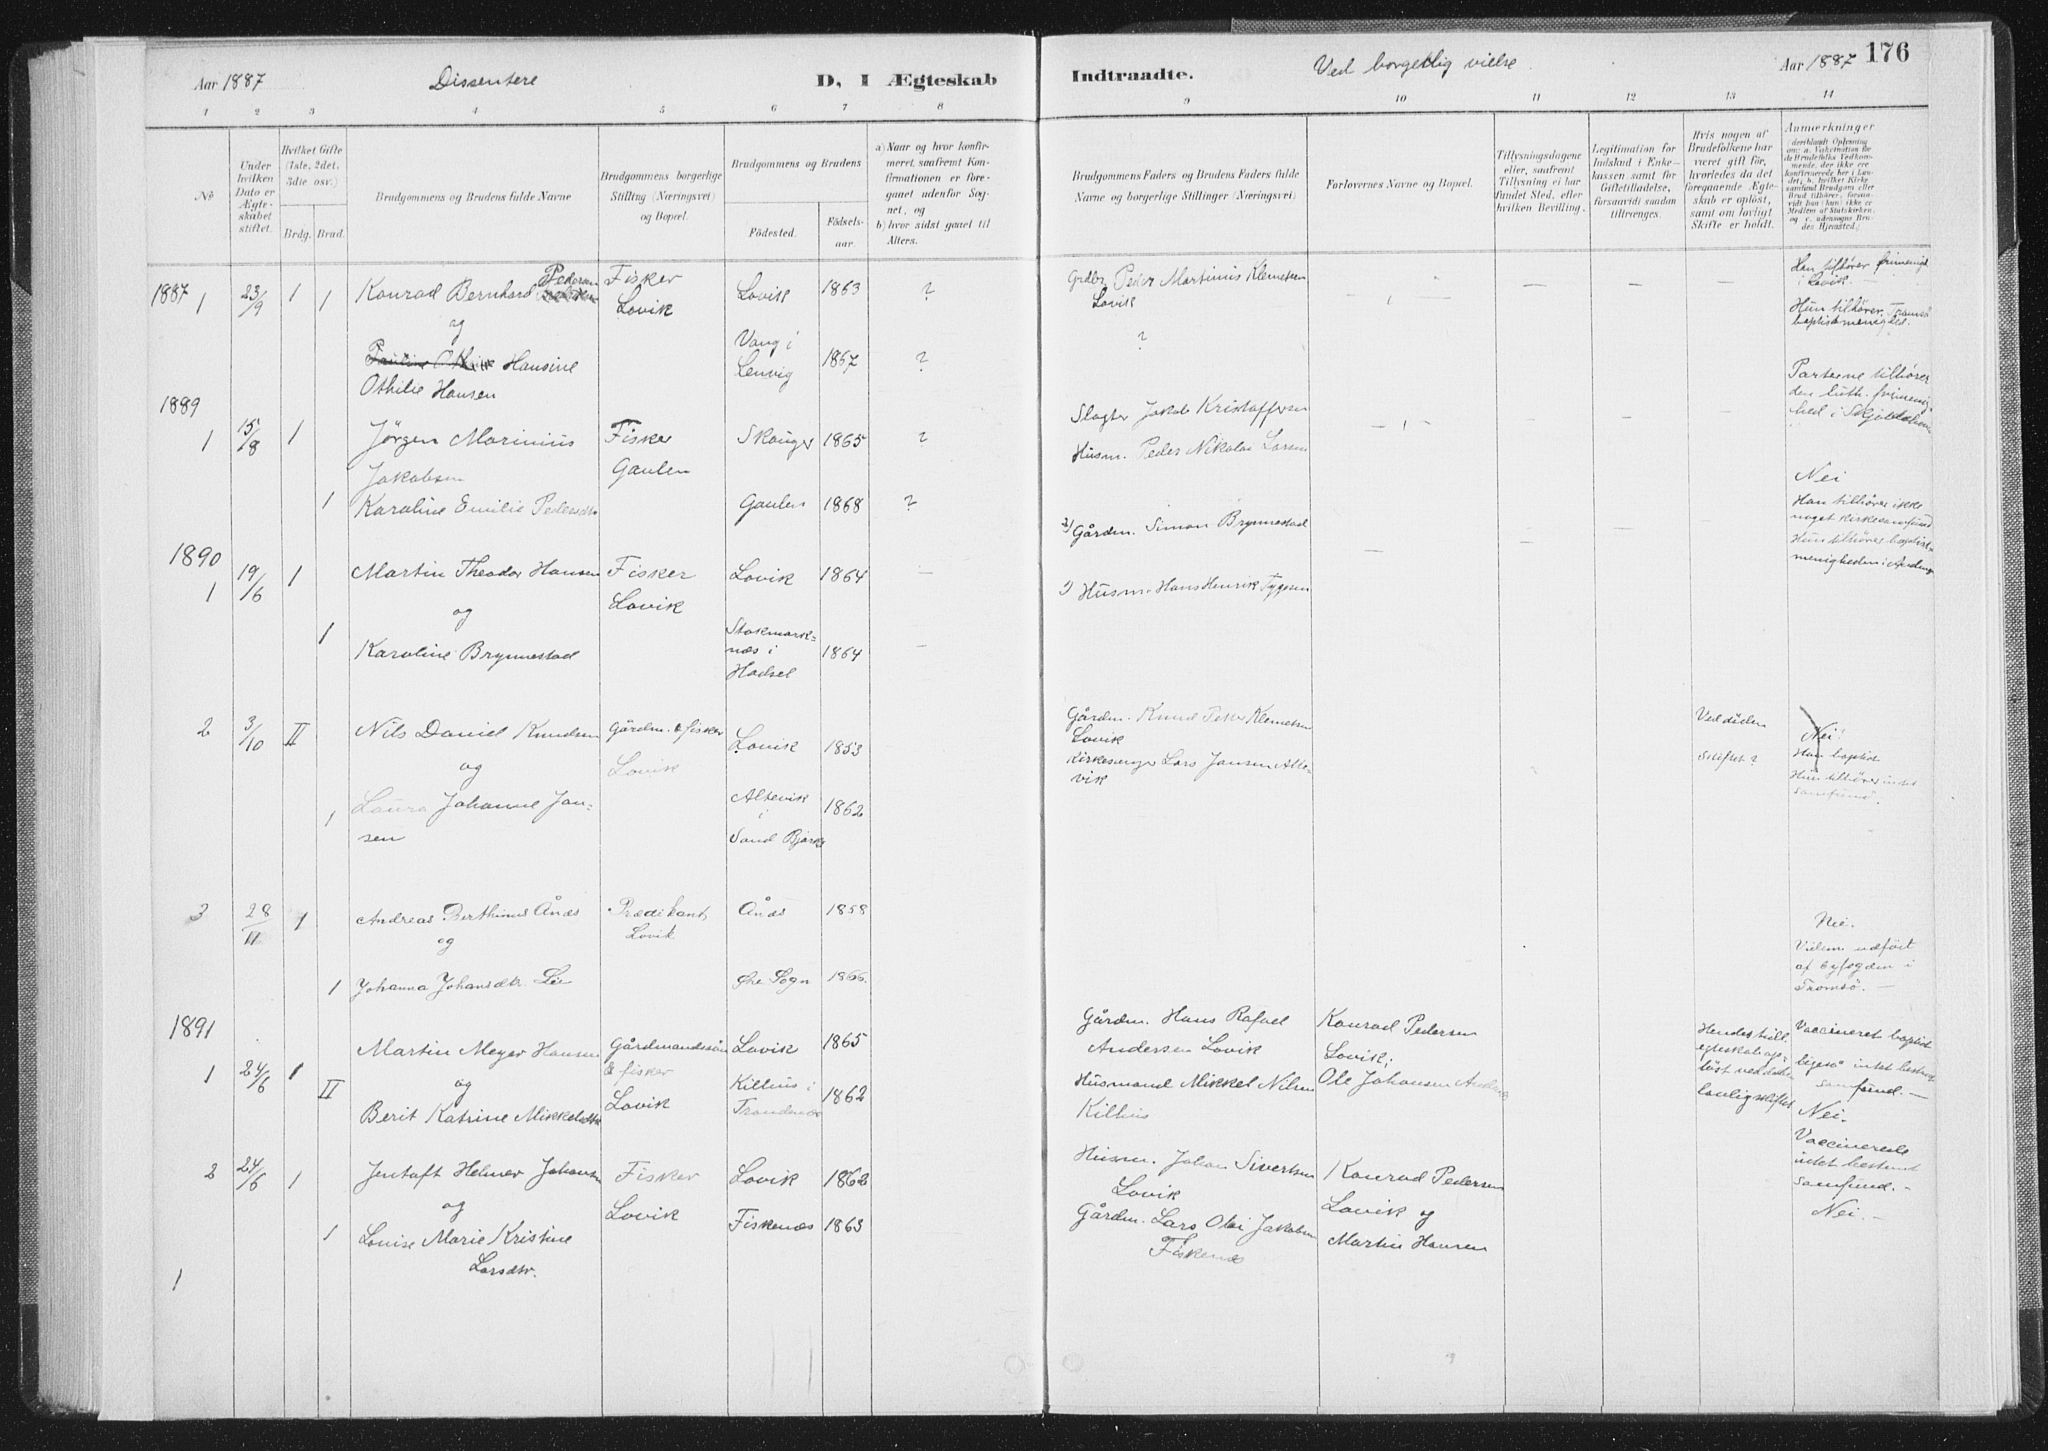 Aar 1887 Dissentere D, I Ægteskab Indtraadte. Ved borgerlig vielse Aar 1887 176
1 2 3 4 5 6 7 8 9 10 11 12 13 14
No
Under hvilken Dato er Ægteskabet stiftet.
Hvilket Gifte (1ste, 2det, 3die osv.)
Brdg. Brud.
Brudgommens og Brudens fulde Navne
Brudgommens borgerlige Stilling (Næringsvei) og Bopæl.
Brudgommens og Brudens
Födested.
Födselsaar.
a) Naar og hvor konfirmeret, saafremt Konfirmationen er foregaaet udenför Sognet, og
b) hvor sidst gaaet til Alters.
Brudgommens Faders og Brudens Faders fulde Navne og borgerlige Stillinger (Næringsvei)
Forlovernes Navne og Bopæl.
Tillysningsdagene eller, saafremt Tillysning ei har fundet Sted, efter hvilken Bevilling.
Legitimation for Indskud i Enkekassen samt for Giftetilladelse, forsaavidt saadan tiltrænges.
Hvis nogen af Brudefolkene har været gift för, hvorledes da det foregaaende Ægteskab er oplöst, samt om lovligt Skifte er holdt.
Anmærkninger
1887
1 23/9 1 1 Konrad Bernhard Pedersen Fisker Lovik Lovik 1863 ? Peder Martinius Klemetsen Lovik
Han tilhører frimenigh. i Lovik.
og
Hansine Othilie Hansen Vang i Lenvig 1857 ? ?
Hun tilhører Tromsö baptistmenighed.
1889
1 15/8 1 Jørgen Marinius Jakobsen Fisker Gaulen Skonger 1865 ? Slagter Jakob Kristoffersen
Parterne tilhører den luth. frimenighed i
1 Karoline Emilie Pedersdtr Gaulen 1868 ? Husm. Peder Nikolai Larsen
Nei
1890
1 19/6 1 Martin Theodor Hansen Fisker Lovik Lovik 1864 – 2) Gårdm. Simon Brynnestad
Han tilhører ikke noget kirkesamfund
og
Hun tilhører baptistmenigheden i
1 Karoline Brynnestad Stokmarknæs i Hadsel 1864 – 1) Husm. Hans Henrik Tygesen
2 3/10 II Nils Daniel Knudsen Gårdm. & fisker Lovik Lovik 1853 Gårdm. Knud Peter Klemetsen Lovik
Ved döden
Skiftet?
Nei!
og
Han baptist
1 Laura Johanne Jansen Altevik i Sand Bjarkø 1862 Kirkesanger Lars Jansen Altevik
Hun tilhører intet samfund.
3 28/11 1 Andreas Berthinus Ånæs Prædikant Lovik Ånæs 1858
Nei.
og
Vielsen udført af byfogden i Tromsö. –
1 Johanna Johansdtr. Lie Øhe Sogn 1866.
1891
1 24/6 1 Martin Meyer Hansen Gårdmandssön & fisker Lovik Lovik 1865 Gårdm. Hans Rafael Andersen Lovik Konrad Pedersen Lovik;
Hendes tidl. egteskab oplöst ved döden lovlig skiftet
Vaccineret baptist
ligesö intet bestemt samfund. –
og
II Berit Katrine Mikkelsdtr Kilhus i Trondenæs 1862 Husmand Mikkel Nilsen Kilhus Ole Johansen
Nei.
2 24/6 1 Jentoft Helmer Johansen Fisker Lovik Lovik 1862 Husm. Johan Sivertsen Lovik Konrad Pedersen Lovik og
Vaccinerede intet bestemt samfund. –
og
1 Louise Marie Kristine Larsdtr. Fiskenæs 1863 Gårdm. Lars Olai Jakobsen Fiskenæs Martin Hansen
Nei. –
1